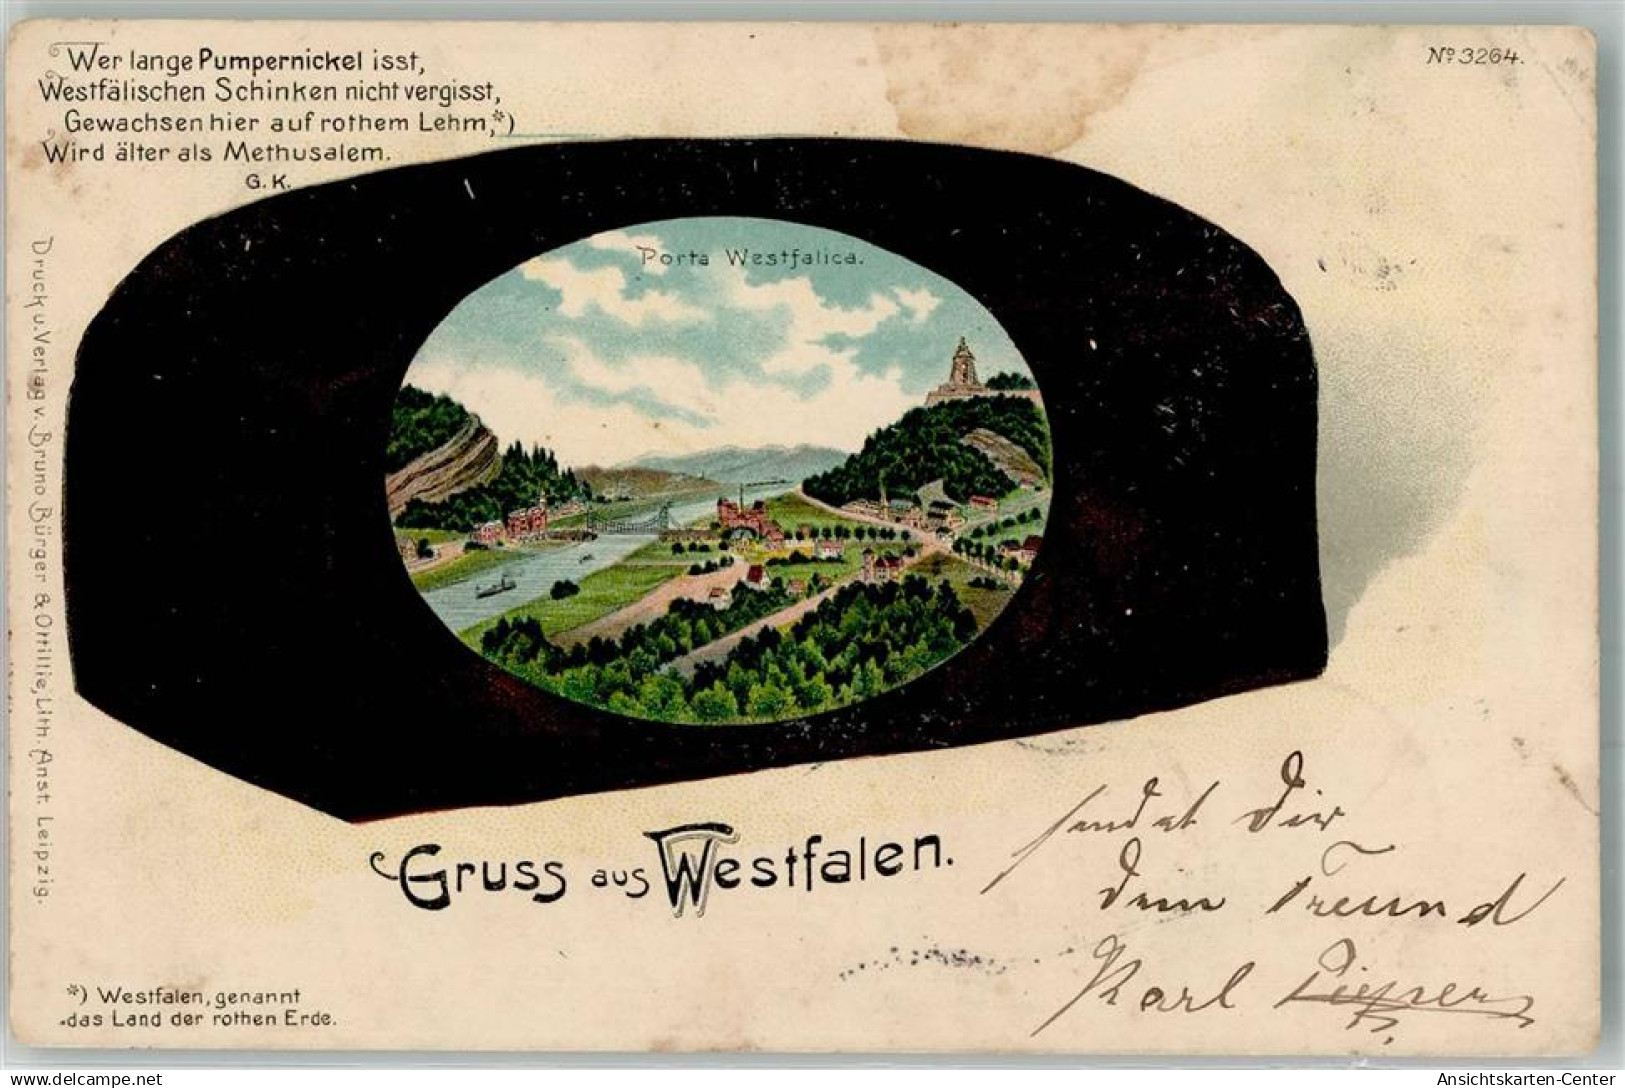 Wer lange Pumpernickel isst,
Westfälischen Schinken nicht vergisst,
Gewachsen hier auf rothem Lehm,*)
Wird älter als Methusalem.
G. K.
No 3264.
Porta Westfalica.
Druck u. Verlag v. Bruno Bürger & Ottillie, Lith. Anst. Leipzig.
Gruss aus Westfalen.
sendet Dir
Dein Freund
Karl Pieper
*) Westfalen, genannt
das Land der rothen Erde.
Ansichtskarten-Center